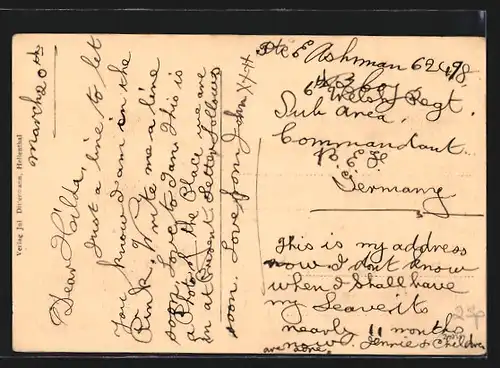 Verlag Jul. Dittermann, Hellenthal
March 20th
Dear Hilda,
Just a line to let
you know I am in the
Pink. Write me a line
soon. Love to Dan. This is
a Photo of the Place we are
in at Present. Letter follows
soon. Love from Jim XXX
Pte E Ashman 62498
Welsh Regt.
Sub Area,
Commandant
Germany
This is my address
now I dont know
when I shall have
my Leave its
nearly 11 months
now. Jennie & Children
are fine.